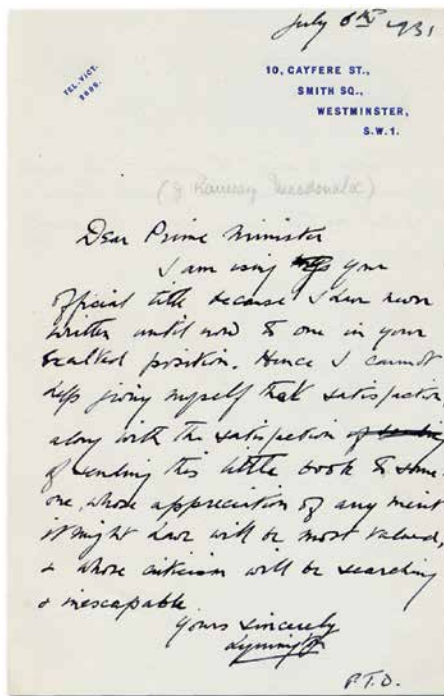 July 6th 1931
TEL. VICT.
10, CAYFERE ST.,
SMITH SQ.,
WESTMINSTER,
S.W.1.
(J Ramsay Macdonald)
Dear Prime Minister
I am using your
official title because I have never
written until now to one in your
exalted position. Hence I cannot
help giving myself that satisfaction
along with the satisfaction of sending
of sending this little book to some-
one, whose appreciation of any merit
it might have will be most valued,
& whose criticism will be searching
& inescapable
Yours sincerely
Lymington
P.T.O.